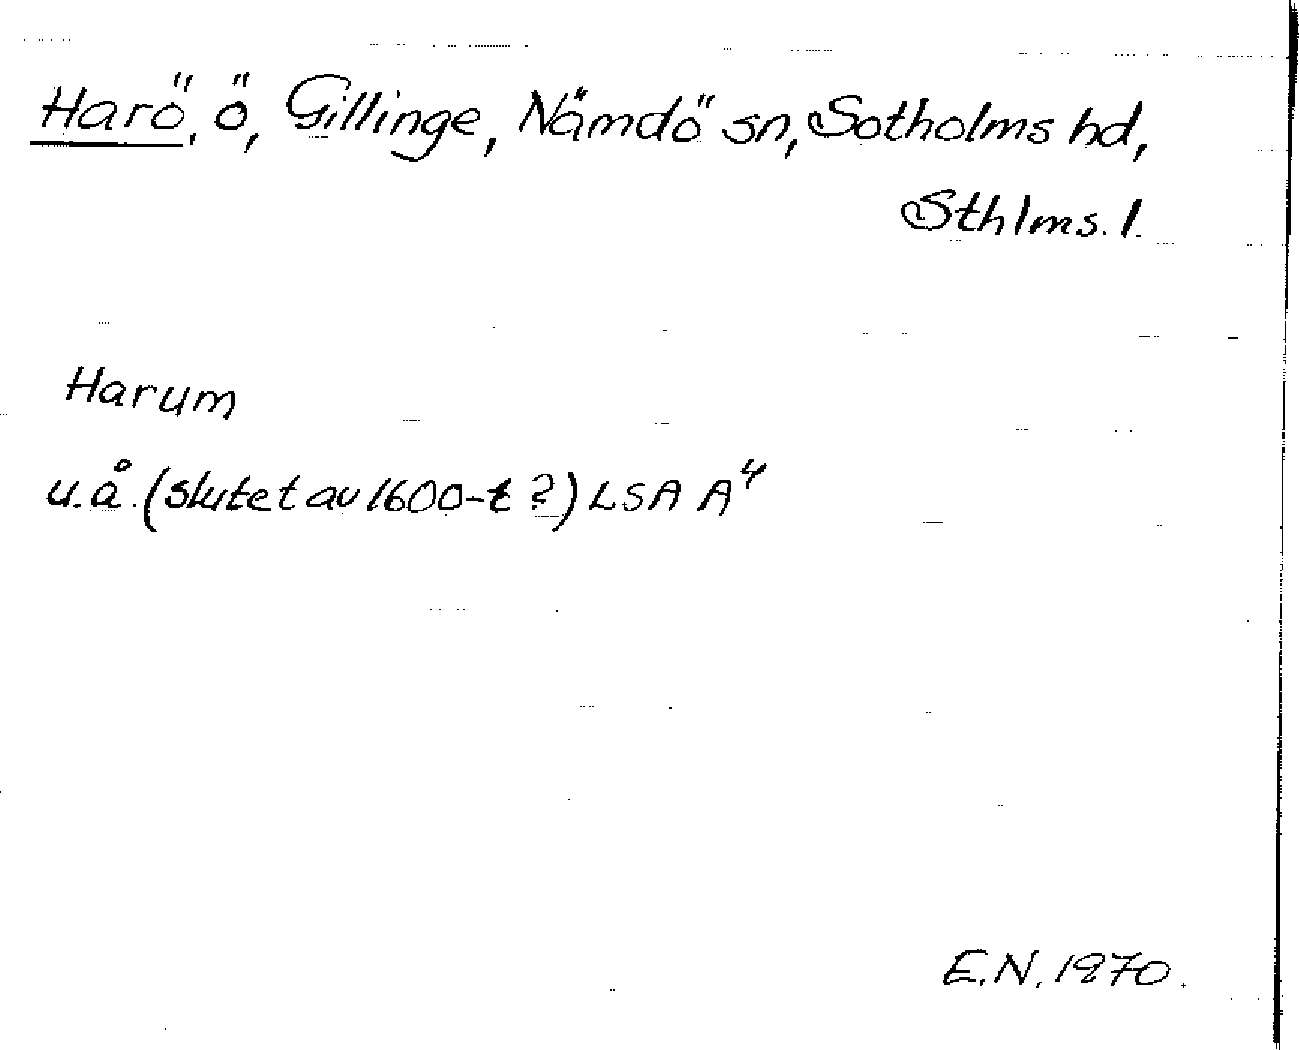 Harö, ö, Gillinge, Nämdö sn, Sotholms hd,
Sthlms. l.
Harum
u.å. (slutet av 1600-t ?) LSA A⁴
E.N. 1970.